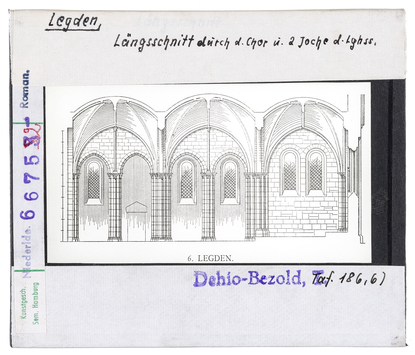 Legden,
Längsschnitt durch d. Chor u. 2 Joche d. Lghss.
6. LEGDEN.
Dehio-Bezold, Taf. 186,6)
Kunstgesch.
Sem. Hamburg
Niederlde. 66757 Roman.